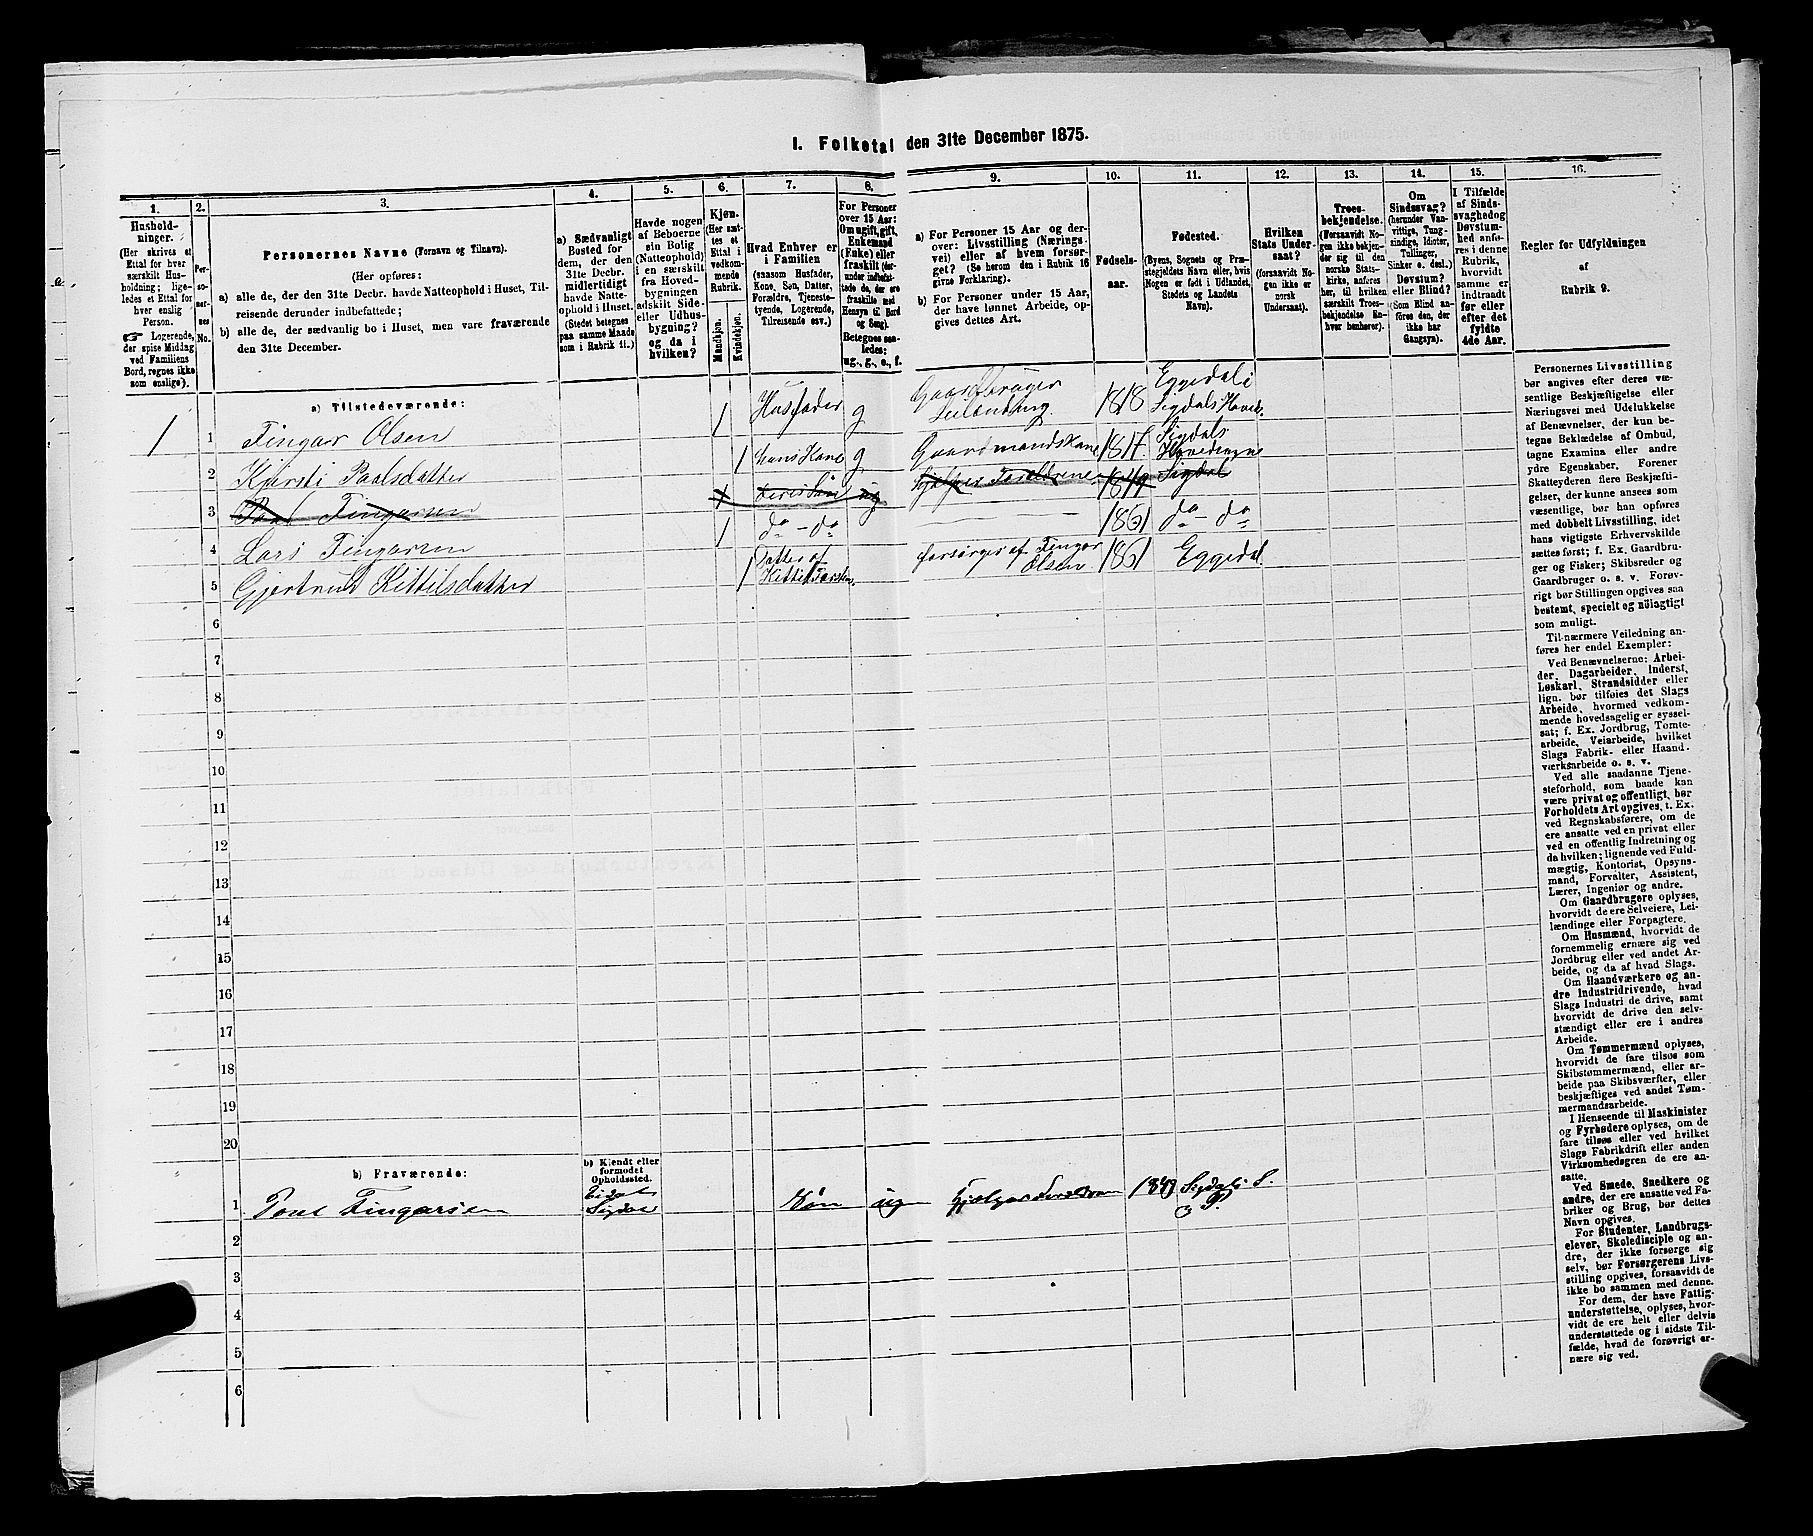 I. Folketal den 31te December 1875.
1.
Hushold-
ninger.
(Her skrives et
Ettal for hver
særskilt Hus-
holdning; lige-
ledes et Ettal for
hver enslig
Person.
☞ Logerende,
der spise Middag
ved Familiens
Bord, regnes ikke
som enslige).
2.
Per-
so-
ner-
nes
No.
3.
Personernes Navne (Fornavn og Tilnavn).
(Her opføres:
a) alle de, der den 31te Decbr. havde Natteophold i Huset, Til-
reisende derunder indbefattede;
b) alle de, der sædvanlig bo i Huset, men vare fraværende
den 31te December.
4.
a) Sædvanligt
Bosted for
dem, der den
31te Decbr.
midlertidigt
havde Natte-
ophold i Huset.
(Stedet betegnes
paa samme Maade
som i Rubrik 11.)
5.
Havde nogen
af Beboerne
sin Bolig
(Natteophold)
i en særskilt
fra Hoved-
bygningen
adskilt Side-
eller Udhus-
bygning?
og da i
hvilken?
6.
Kjøn.
(Her sæt-
tes et
Ettal i
vedkom-
mende
Rubrik.
Mandkjøn.
Kvindekjøn.
7.
Hvad Enhver er
i Familien
(saasom Husfader,
Kone, Søn, Datter,
Forældre, Tjeneste-
tyende, Logerende,
Tilreisende osv.)
8.
For Personer
over 15 Aar:
Om ugift, gift,
Enkemand
(Enke) eller
fraskilt (der-
under indbefat-
tede de, der ere
fraskilte med
Hensyn til Bord
og Seng).
Betegnes saa-
ledes:
ug., g., e., f.
9.
a) For Personer 15 Aar og der-
over: Livsstilling (Nærings-
vei) eller af hvem forsør-
get? (Se herom den i Rubrik 16
givne Forklaring).
b) For Personer under 15 Aar,
der have lønnet Arbeide, op-
gives dettes Art.
10.
Fødsels-
aar.
11.
Fødested.
(Byens, Sognets og Præ-
stegjeldets Navn eller, hvis
Nogen er født i Udlandet,
Stedets og Landets
Navn).
12.
Hvilken
Stats Under-
saat?
(forsaavidt No-
gen ikke er
norsk
Undersaat).
13.
Troes-
bekjendelse.
(Forsaavidt No-
gen ikke bekjen-
der sig til den
norske Stats-
kirke, anføres
her, til hvilken
særskilt Troes-
bekjendelse En-
hver henhører).
14.
Om
Sindssvag?
(herunder Van-
vittige, Tung-
sindige, Idioter,
Tullinger,
Sinker o. desl.)
Døvstum?
eller Blind?
(Som Blind an-
føres den, der
ikke har
Gangsyn).
15.
I Tilfælde
af Sinds-
svaghed og
Døvstum-
hed anfø-
res i denne
Rubrik,
hvorvidt
samme er
indtraadt
før eller
efter det
fyldte
4de Aar.
16.
Regler for Udfyldningen
af
Rubrik 9.
a) Tilstedeværende:
1 1 Fingar Olsen 1 Husfader g Gaardbruger 1818 Eggedal i
Leilending. Sigdals Hoved.
2 Kjersti Paalsdatter 1 hans Kone g Gaardmandskone 1817 Sigdals
Hovedsogn
3 Paal Fingarsen Søn ug Hjelper Forældrene Sigdal
4 Lars Fingarsen 1 do - do 1861 do - do
5 Gjertrud Kittilsdatter 1 Datter af forsørges af Fingar 1861 Eggedal.
Kittil Olsen
6
7
8
9
10
11
12
13
14
15
16
17
18
19
20
b) Fraværende:
b) Kjendt eller
formodet
Opholdssted.
1 Paul Fingarsen Sigdal Søn ug Sigdals S.
P.
2
3
4
5
6
Personernes Livsstilling
bør angives efter deres væ-
sentlige Beskjæftigelse eller
Næringsvei med Udelukkelse
af Benævnelser, der kun be-
tegne Beklædelse af Ombud,
tagne Examina eller andre
ydre Egenskaber. Forener
Skatteyderen flere Beskjæfti-
gelser, der kunne ansees som
væsentlige, bør han opføres
med dobbelt Livsstilling, idet
hans vigtigste Erhvervskilde
sættes først; f. Ex. Gaardbru-
ger og Fisker; Skibsreder og
Gaardbruger o. s. v. Forøv-
rigt bør Stillingen opgives saa
bestemt, specielt og nøiagtigt
som muligt.
Til nærmere Veiledning an-
føres her endel Exempler:
Ved Benævnelserne: Arbei-
der, Dagarbeider, Inderst,
Løskarl, Strandsidder eller
lign. bør tilføies det Slags
Arbeide, hvormed vedkom-
mende hovedsagelig er syssel-
sat; f. Ex. Jordbrug, Tomte-
arbeide, Veiarbeide, hvilket
Slags Fabrik- eller Haand-
værksarbeide o. s. v.
Ved alle saadanne Tjene-
steforhold, som baade kan
være privat og offentligt, bør
Forholdets Art opgives, t. Ex.
ved Regnskabsførere, om de
ere ansatte ved en privat eller
ved en offentlig Indretning og
da hvilken; lignende ved Fuld-
mægtig, Kontorist, Opsyns-
mand, Forvalter, Assistent,
Lærer, Ingeniør og andre.
Om Gaardbrugere oplyses,
hvorvidt de ere Selveiere, Lei-
lændinge eller Forpagtere.
Om Husmænd, hvorvidt de
fornemmelig ernære sig ved
Jordbrug eller ved andet Ar-
beide, og da af hvad Slags.
Om Haandværkere og an-
dre Industridrivende, hvad
Slags Industri de drive, samt
hvorvidt de drive den selv-
stændigt eller ere i andres
Arbeide.
Om Tømmermænd oplyses,
hvorvidt de fare tilsøs som
Skibstømmermænd, eller ar-
beide paa Skibsværfter, eller
beskjæftiges ved andet Tøm-
mermandsarbeide.
I Henseende til Maskinister
og Fyrbødere oplyses, om de
fare tilsøs eller ved hvilket
Slags Fabrikdrift eller anden
Virksomhedsgren de ere an-
satte.
Ved Smede, Snedkere og
andre, der ere ansatte ved Fa-
briker og Brug, bør dettes
Navn opgives.
For Studenter, Landbrugs-
elever, Skoledisciple og an-
dre, der ikke forsørge sig
selv, bør Forsørgerens Livs-
stilling opgives, forsaavidt de
ikke bo sammen med denne.
For dem, der have Fattig-
understøttelse, oplyses, hvor-
vidt de ere helt eller delvis
understøttede og i sidste Til-
fælde, hvad de forøvrigt er-
nære sig ved.